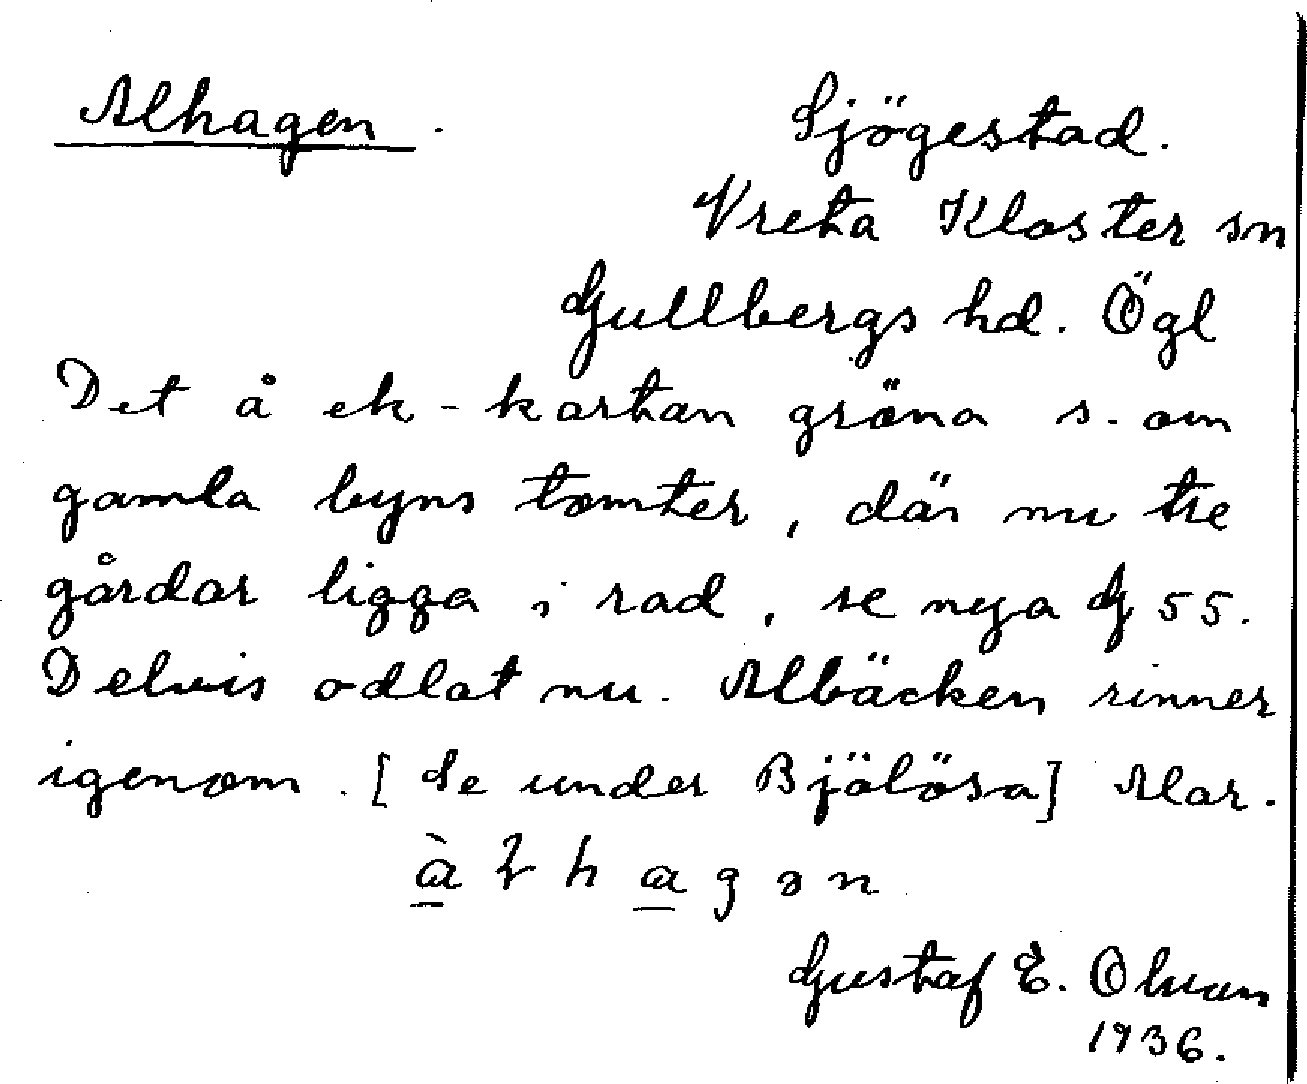 Alhagen. Sjögestad.
Vreta Kloster sn
Gullbergs hd. Ögl
Det å ek-kartan gröna s. om
gamla byns tomter, där nu tre
gårdar ligga i rad, se nya G 55.
Delvis odlat nu. Albäcken rinner
igenom. [Se under Bjälösa] Alar.
àɫhagən
Gustaf E. Olsson
1936.